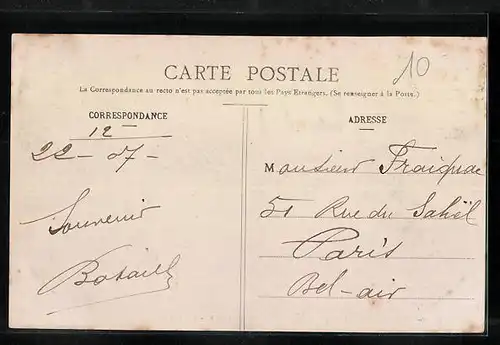 10
CARTE POSTALE
La Correspondance au recto n'est pas acceptée par tous les Pays Etrangers. (Se renseigner à la Poste.)
CORRESPONDANCE
12
22 - 07 -
Souvenir
ADRESSE
Monsieur
51 Rue du Sahel
Paris
Bel-air